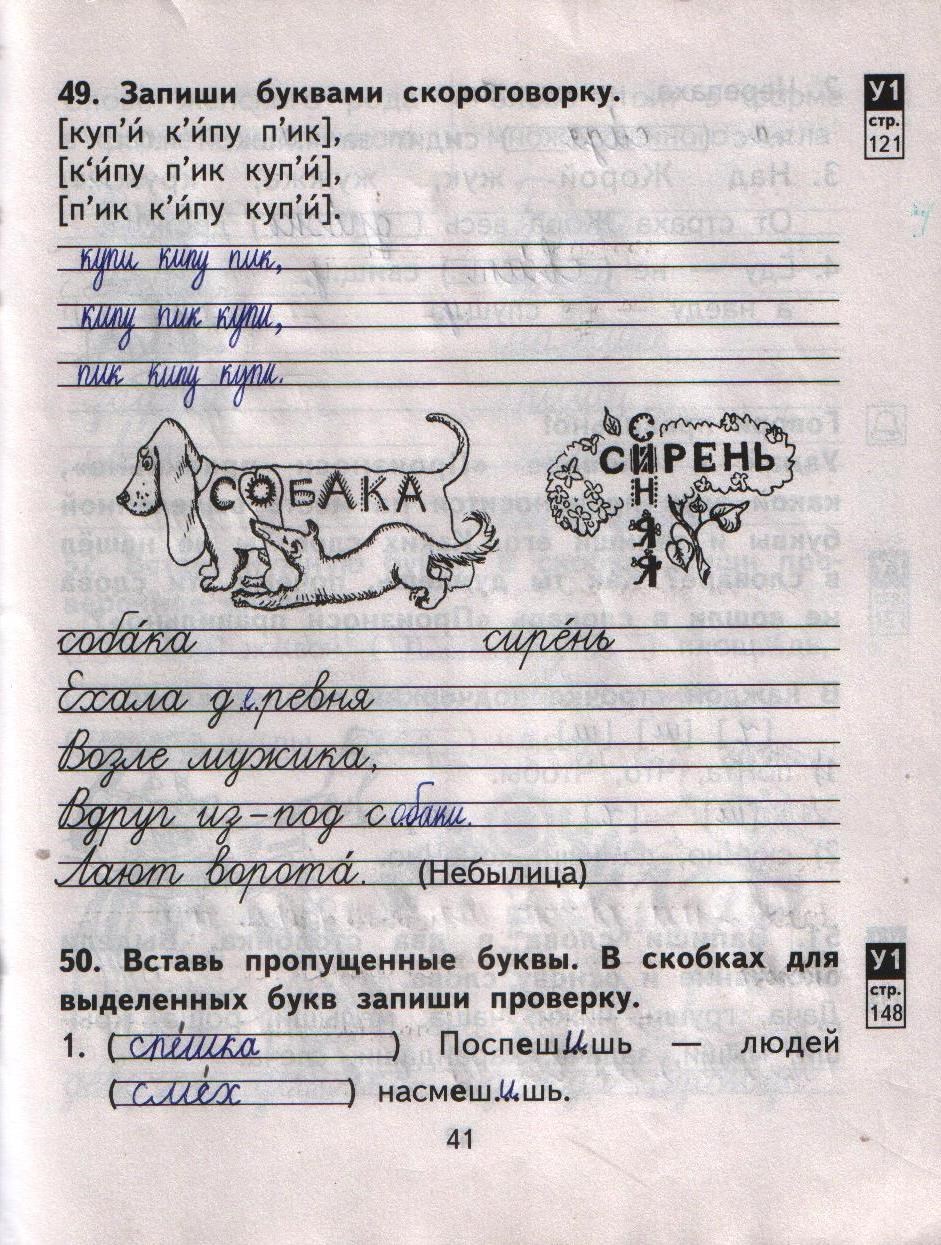 49. Запиши буквами скороговорку.
У1
стр.
121
[куп'и́ к'и́пу п'ик],
[к‘и́пу п'ик куп'и́],
[п'ик к'и́пу куп'и́].
купи кипу пик,
кипу пик купи,
пик кипу купи.
СОБАКА
СИРЕНЬ
СИНЯЯ
соба́ка сире́нь
Ехала деревня
Возле мужика,
Вдруг из-под собаки.
Лают ворота́. (Небылица)
50. Вставь пропущенные буквы. В скобках для
выделенных букв запиши проверку.
У1
стр.
148
1. (спе́шка) Поспешишь — людей
(сме́х) насмешишь.
41